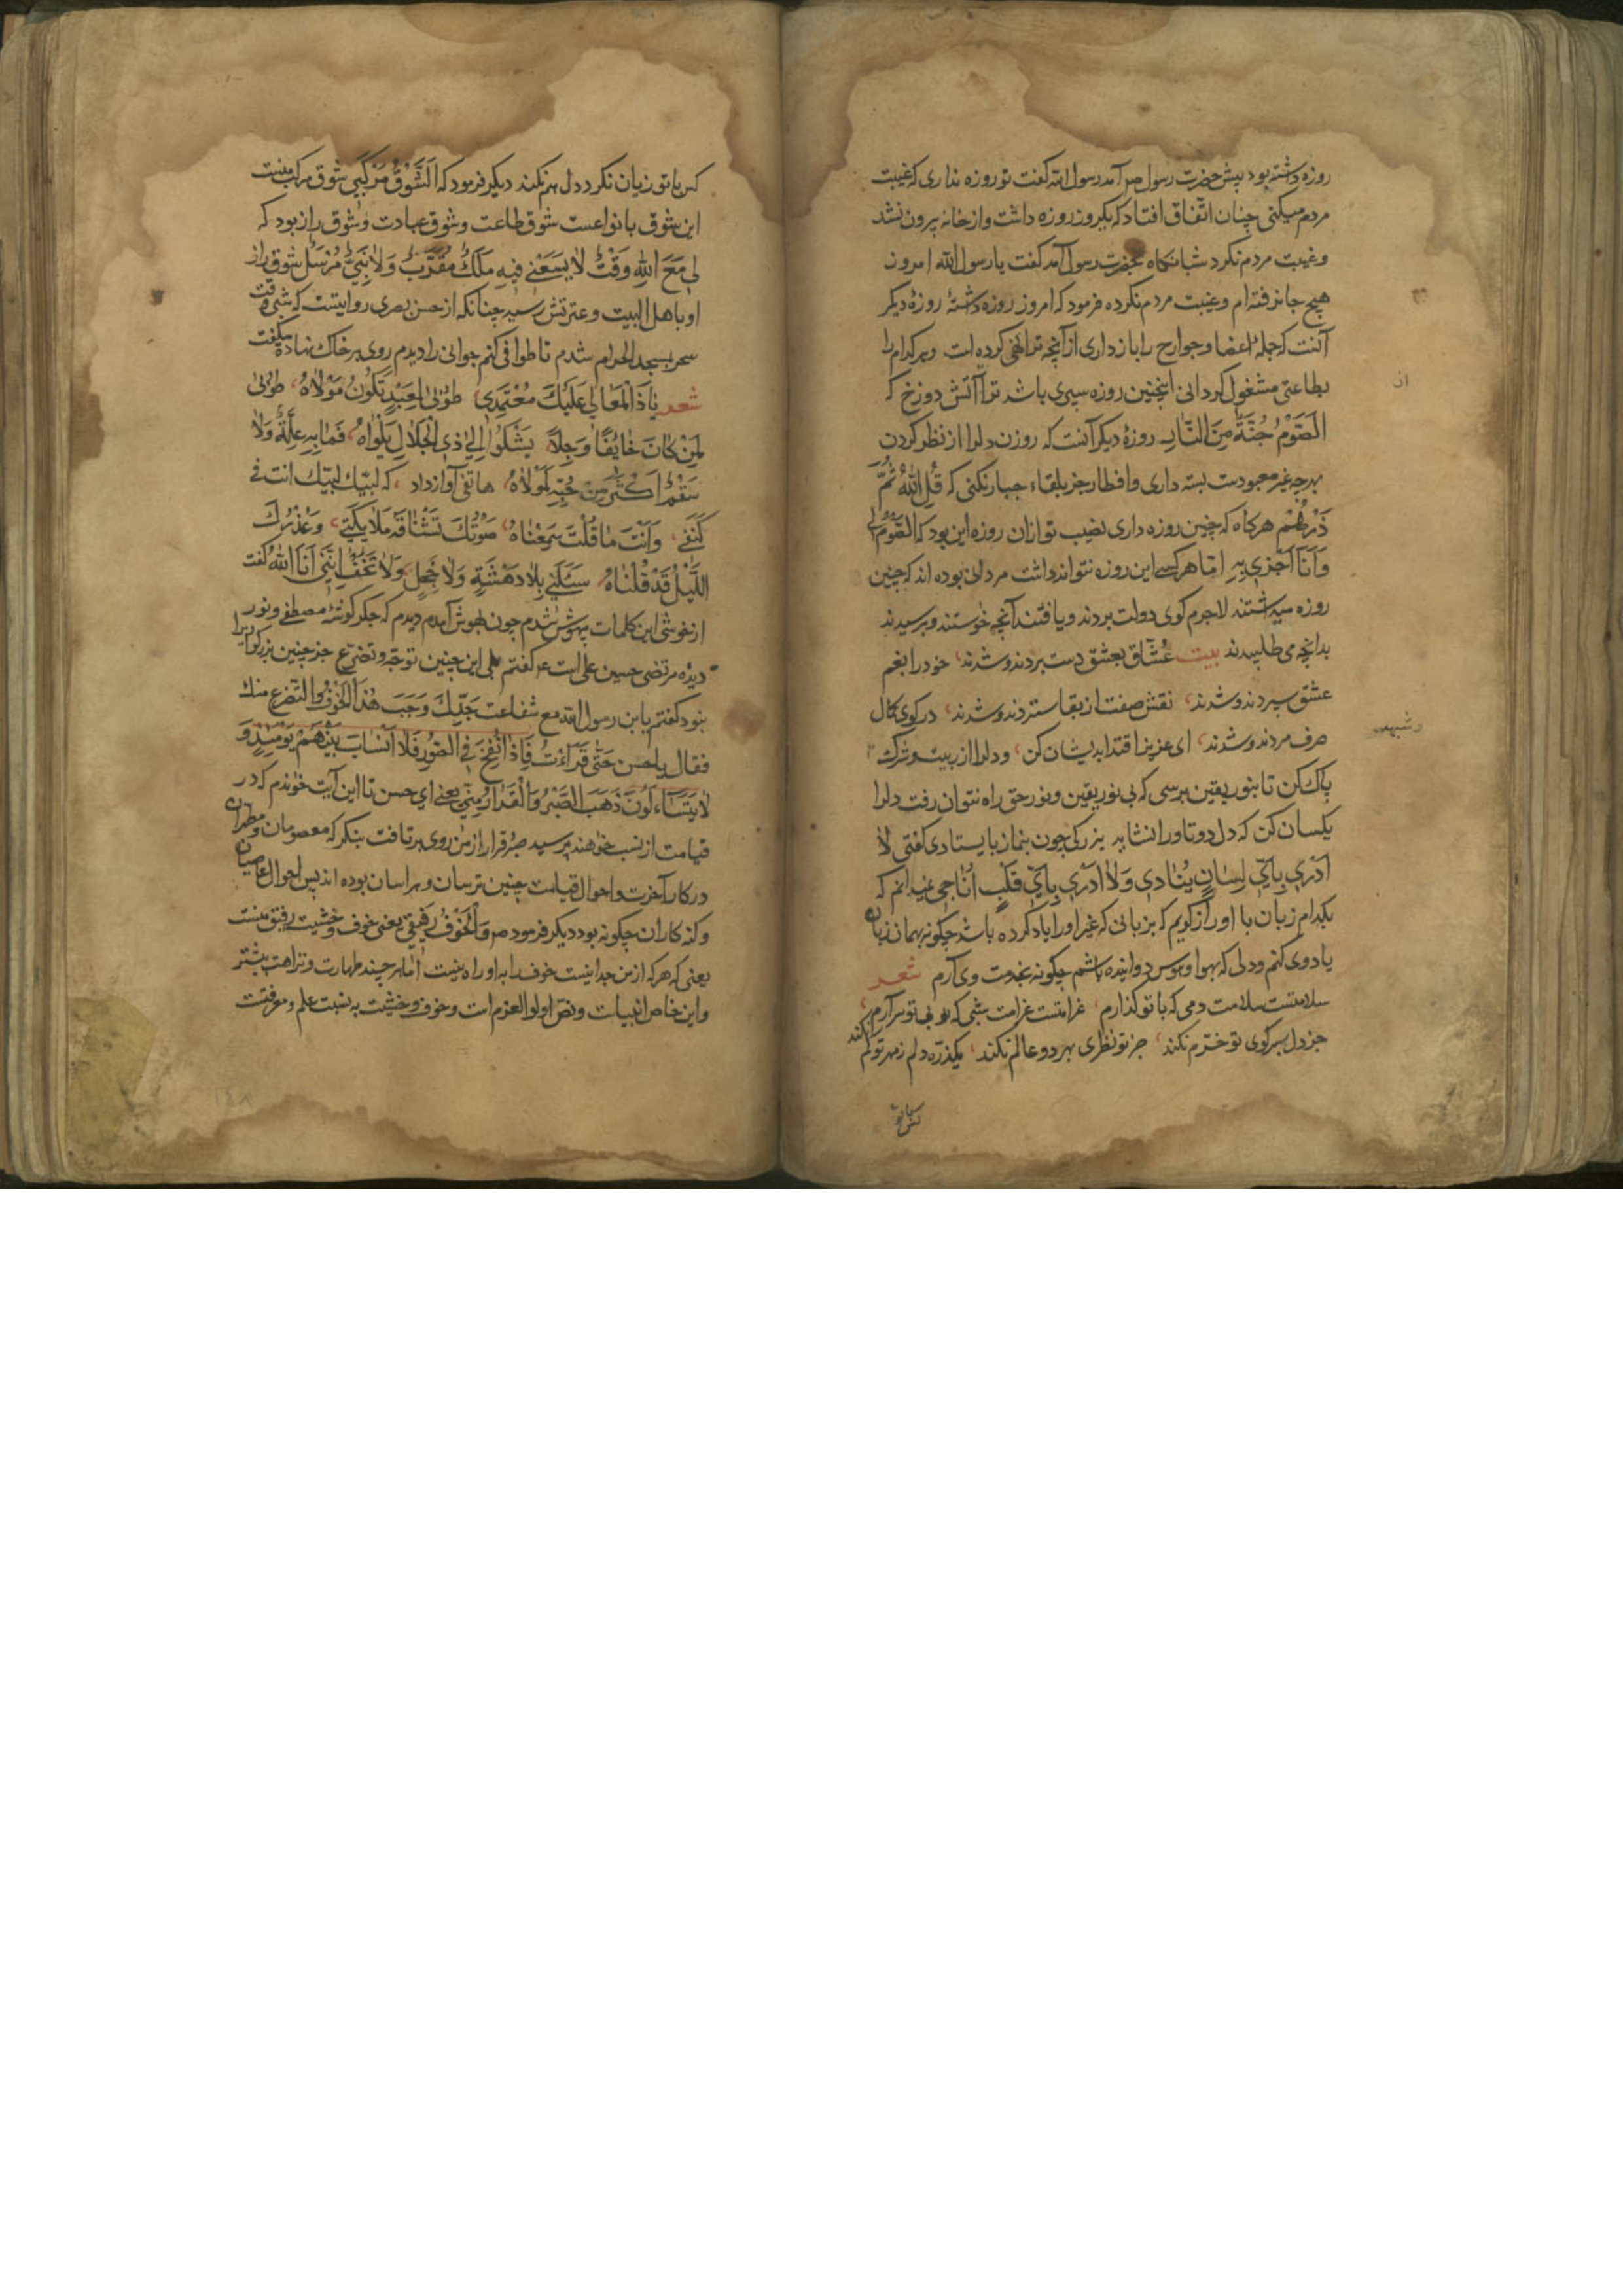 روزه داشته بود پیش حضرت رسول ص آمد رسول الله گفت تو روزه نداری که غیبت
مردم میکنی چنان اتفاق افتاد که یکروز روزه داشت و از خانه بیرون نشد
و غیبت مردم نکرد شبانکاه بحضرت رسول آمد گفت یا رسول الله امروز
هیچ جا نرفته ام و غیبت مردم نکرده فرمود که امروز روزه داشتهٔ روزهٔ دیکر
آنست که جملهٔ اعضا و جوارح را بازداری از آنچه ترا نهی کرده است و هر کدام را
ان
بطاعتی مشغول کردانی اینچنین روزه سپری باشد ترا از آتش دوزخ که
اَلصَّوْمُ جُنَّةٌ مِنَ النَّارِ روزهٔ دیکر آنست که روزن دلرا از نظر کردن
بهرچه غیر معبودست بسته داری و افطار جز بلقاء جبار نکنی که قُلِ اللهُ ثُمَّ
ذَرْهُمْ هرکاه که چنین روزه داری نصیب تو ازان روزه این بود که الصَّوْمُ لِی
وَاَنَا اَجْزِی بِهِ اما هر کسی این روزه نتواند داشت مردانی بوده اند که چنین
روزه میداشتند لاجرم کوی دولت بردند و یافتند آنچه خواستند و برسیدند
بدانچه می طلبیدند بیت عُشّاق بعشق دست بردند و شدند، خود را بغم
عشق سپردند و شدند، نقش صفت از بقا ستردند و شدند، در کوی کمال
صرف مردند و شدند، ای عزیز اقتدا بدیشان کن، و دلرا از ریب و شرک
پاک کن تا بنور یقین برسی که بی نور یقین و نور حق راه نتوان رفت دلرا
یکسان کن که دل دوتا او را نشاید بزرکی چون بنماز بایستادی گفتی لا
اَدْری بِاَیِّ لِسانٍ یُنادی وَلا اَدْری بِاَیِّ قَلْبٍ اُناجی نمیدانم که
بکدام زبان با او راز کویم که بزبانی که غیر او را یاد کرده باشد چکونه بهمان زبان
یاد وی کنم و دلی که بهوا و هوس دوانیده باشم چکونه بخدمت وی آرم شعر
سلامتست سلامت دمی که با تو کذارم، غرامتست غرامت شبی که بی تو سر آرم،
جز دل بسر کوی تو خترم نکند، جز تو نظری بهر دو عالم نکند، یکذره دلم ز مهر تو کم نکند
کس با تو
کس با تو زیان نکرد دل هم نکند دیکر فرمود که اَلشَّوْقُ مَرْکَبی شوق مرکب منست
این شوق بانواعست شوق طاعت و شوق عبادت و شوق راز بود که
لِی مَعَ اللهِ وَقْتٌ لا یَسَعُنی فیهِ مَلَکٌ مُقَرَّبٌ وَلا نَبِیٌّ مُرْسَلٌ شوق راز
او باهل البیت و عترتش رسید چنانکه از حسن بصری روایتست که شبی وقت
سحر بمسجد الحرام شدم تا طوافی کنم جوانی را دیدم روی بر خاک نهاده میکفت
شعر یا ذَا الْمَعالی عَلَیْکَ مُعْتَمَدی، طُوْبی لِعَبْدٍ تَکُونُ مَوْلاهُ، طُوْبی
لِمَنْ کانَ خائِفًا وَجِلًا، یَشْکُوا اِلی ذِی الْجَلالِ بَلْواهُ، فَما بِهِ عِلَّةٌ وَلا
سَقَمٌ اَکْثَرُ مِنْ حُبِّهِ لِمَوْلاهُ، هاتفی آواز داد، که لبیک لبیک انت فی
کَنَفی، وَاَنْتَ ما قُلْتَ سَمِعْناهُ، صَوْتُکَ تَشْتاقُهُ مَلائِکَتی، وَعُذْرُکَ
اللَّیْلَ قَدْ قَبِلْناهُ، سَلْنی بِلا دَهْشَةٍ وَلا خَجَلٍ، وَلا تَخَفْ اِنَّنی اَنَا اللهُ گفت
از خوشی این کلمات بیهوش شدم چون بهوش آمدم دیدم که جکر کوشهٔ مصطفی و نور
دیده مرتضی حسین علی است ع گفتم بلی این چنین توجه و تضرع جز چنین بزرکوار را
نبود گفتم یا بن رسول الله مع شفاعت جَدِّکَ وَجَبَ هٰذَا الْخَوْفُ والتضرع منک
فقال یا حسن حَتّی قَرَأْتُ فَاِذا نُفِخَ فِی الصُّورِ فَلا اَنْسابَ بَیْنَهُمْ یَوْمَئِذٍ وَ
لا یَتَساءَلُونَ ذَهَبَ الصَّبْرُ وَالْقَرارُ مِنّی یعنی ای حسن تا این آیت خواندم که در
قیامت از نسب نخواهند پرسید صبر و قرار از من روی برتافت بنکر که معصومان و مطهران
در کار آخرت و احوال قیامت چنین ترسان و هراسان بوده اند پس احوال عاصیان
و کنه کاران چکونه بود دیکر فرمود ص وَالْخَوْفُ رَفیقی یعنی خوف و خشیت رفیق منست
یعنی که هر که از من جداییست خوف را به او راه نیست اما هر چند طهارت و نزاهت بیشتر
و این خاص انبیاست و نص اولوا العزم است و خوف و خشیت به نسبت علم و معرفتست